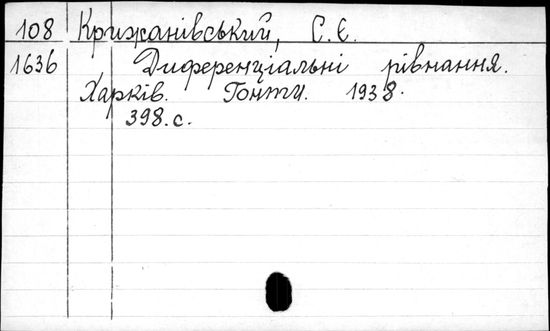 108 Крижанівський, С.Є.
1636 Диференціальні рівнання.
Харків. Гонти. 1938.
398.с.